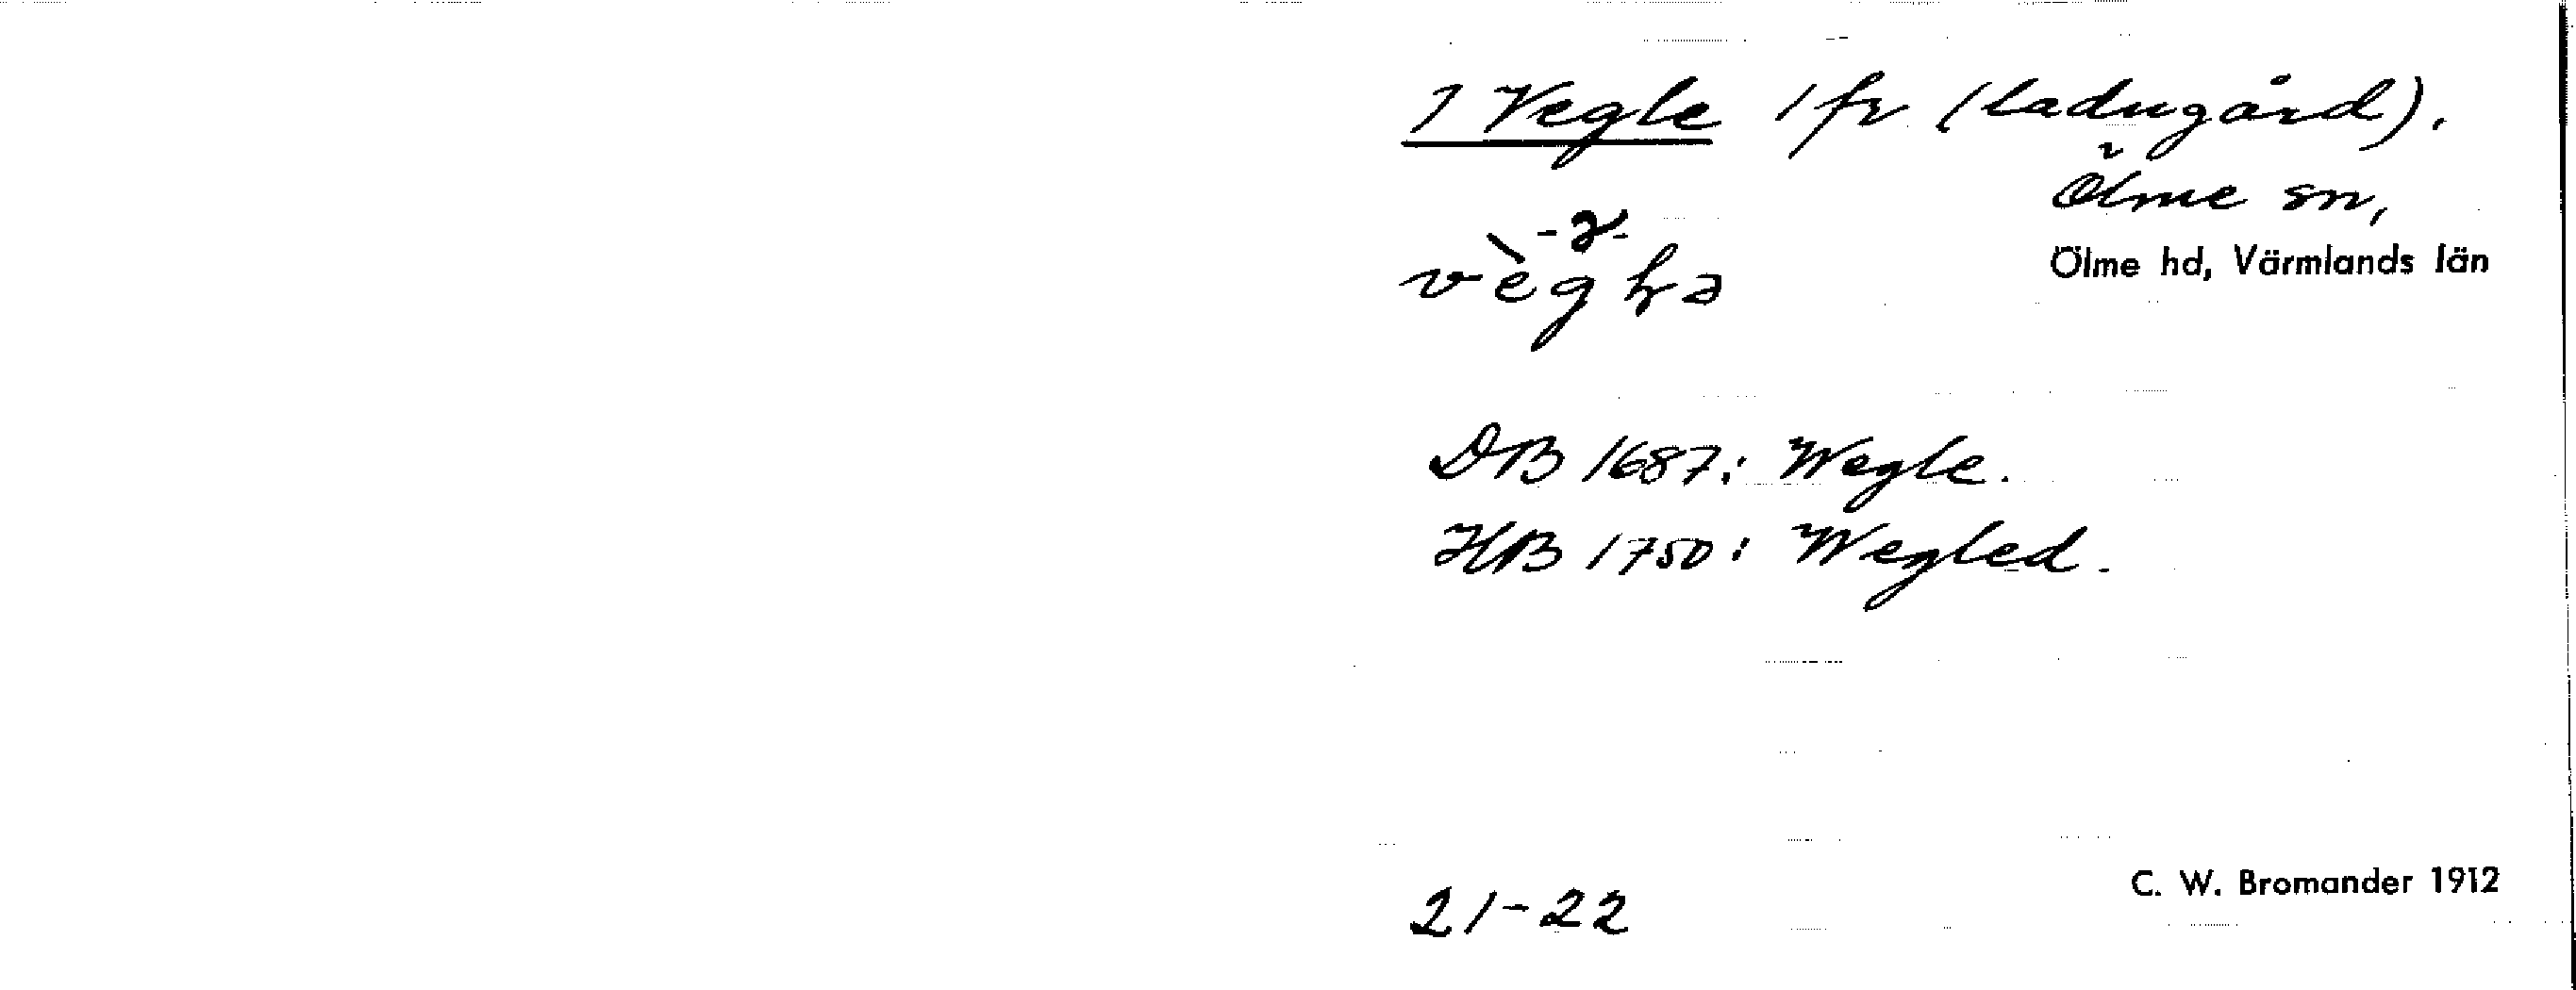 7 Vegle 1 fr (ladugård).
Ölme sn,
Ölme hd, Värmlands län
DB 1687: Wegle.
HB 1750: Wegled.
21-22
C. W. Bromander 1912